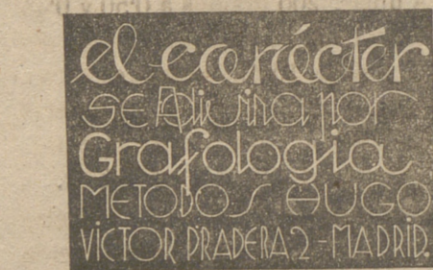 el carácter
SE Adivina por
Grafologia
METODOS HUGO
VICTOR PRADERA 2 - MADRID.